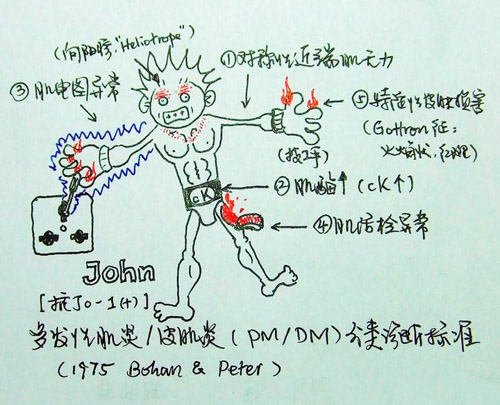 (向阳疹,"Heliotrope")
①对称性近端肌无力
③肌电图异常
⑤特征性皮肤损害
(Gottron征:
(技工手)
②肌酶↑ (CK↑)
CK
④肌活检异常
John
[抗Jo-1(+)]
多发性肌炎/皮肌炎(PM/DM)分类诊断标准
(1975 Bohan & Peter)